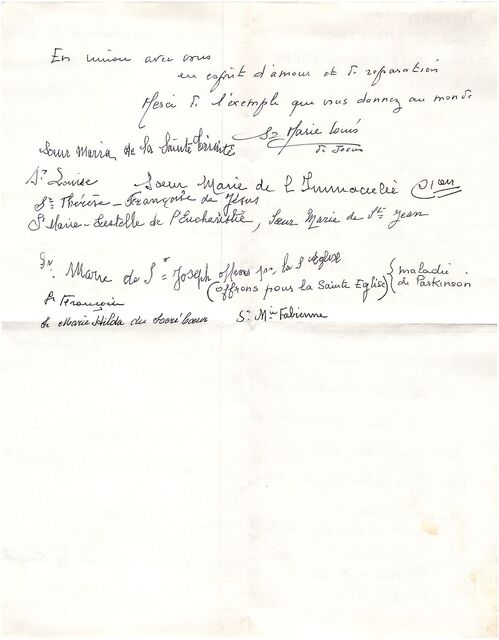 En union avec vous
en esprit d'amour et de reparation
Merci de l'exemple que vous donnez au monde
Sr Marie Louis
de Jesus
Soeur Maria de la Sainte Trinité
Sr Louise Soeur Marie de l'Immaculée
Sr Thérèse-Françoise de Jésus
Sr Marie-Eustelle de l'Eucharistie, Soeur Marie de St Jean
Sr Marie de St Joseph offrons pr la Ste Eglise
(offrons pour la Sainte Eglise) { maladie de Parkinson
Sr Françoise
Sr Marie Hilda du Sacré Coeur Sr Mie Fabienne